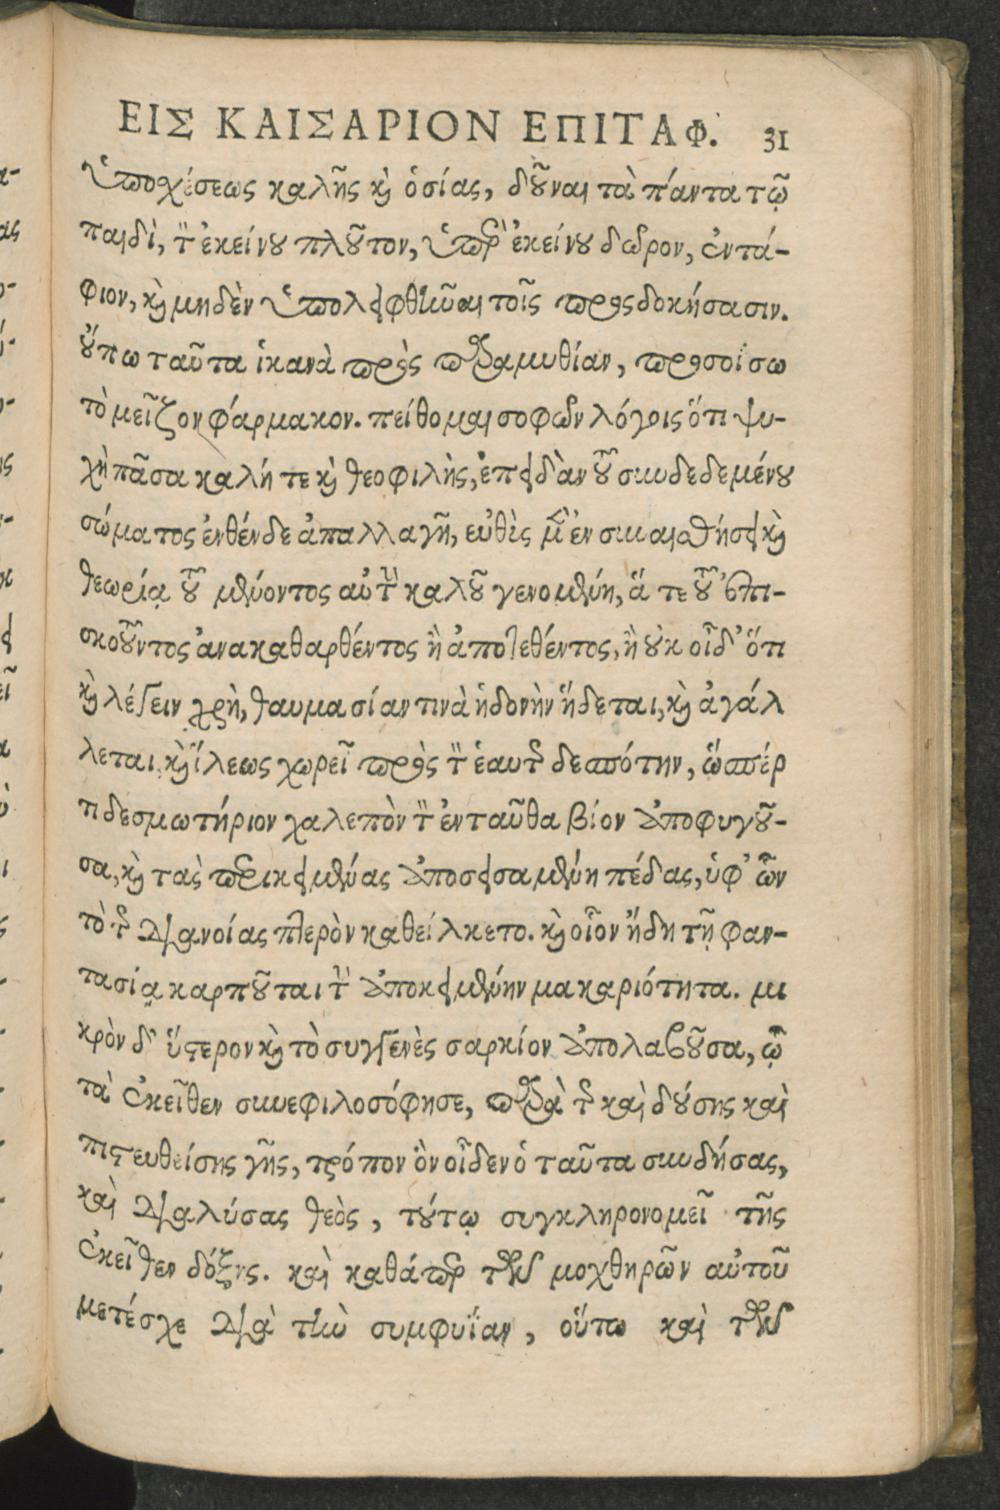 ΕΙΣ ΚΑΙΣΑΡΙΟΝ ΕΠΙΤΑΦ. 31
ὑποχέσεως καλῆς καὶ ὁσίας, δοῦναι τὰ πάντα τῷ
παιδὶ, τὸν ἐκείνου πλοῦτον, ὑπὲρ ἐκείνου δῶρον, ἐντά-
φιον, καὶ μηδὲν ὑπολειφθῆναι τοῖς προςδοκήσασιν.
οὔπω ταῦτα ἱκανὰ πρὸς παραμυθίαν, προσοίσω
τὸ μεῖζον φάρμακον. πείθομαι σοφῶν λόγοις ὅτι ψυ-
χὴ πᾶσα καλή τε καὶ θεοφιλὴς, ἐπειδὰν τοῦ συνδεδεμένου
σώματος ἐνθένδε ἀπαλλαγῇ, εὐθὺς μὲν ἐν συναισθήσει καὶ
θεωρίᾳ τοῦ μένοντος αὐτὴν καλοῦ γενομένη, ἅ τε τοῦ ἐπι-
σκοτοῦντος ἀνακαθαρθέντος ἢ ἀποτεθέντος, ἢ οὐκ οἶδ' ὅτι
καὶ λέγειν χρὴ, θαυμασίαν τινὰ ἡδονὴν ἥδεται, καὶ ἀγάλ
λεται, καὶ ἵλεως χωρεῖ πρὸς τὸν ἑαυτῆς δεσπότην, ὥσπέρ
τι δεσμωτήριον χαλεπὸν τὸν ἐνταῦθα βίον ἀποφυγοῦ-
σα, καὶ τὰς περικειμένας ἀποσεισαμένη πέδας, ὑφ' ὧν
τὸ τῆς διανοίας πτερὸν καθείλκετο. καὶ οἷον ἤδη τῇ φαν-
τασίᾳ καρποῦται τὴν ἀποκειμένην μακαριότητα. μι
κρὸν δ' ὕστερον καὶ τὸ συγγενὲς σαρκίον ἀπολαβοῦσα, ᾧ
τὰ ἐκεῖθεν συνεφιλοσόφησε, παρὰ τῆς καὶ δούσης καὶ
πιστευθείσης γῆς, τρόπον ὃν οἶδεν ὁ ταῦτα συνδήσας,
καὶ διαλύσας θεὸς, τούτῳ συγκληρονομεῖ τῆς
ἐκεῖθεν δόξης. καὶ καθάπερ τῶν μοχθηρῶν αὐτοῦ
μετέσχε διὰ τὴν συμφυΐαν, οὕτω καὶ τῶν